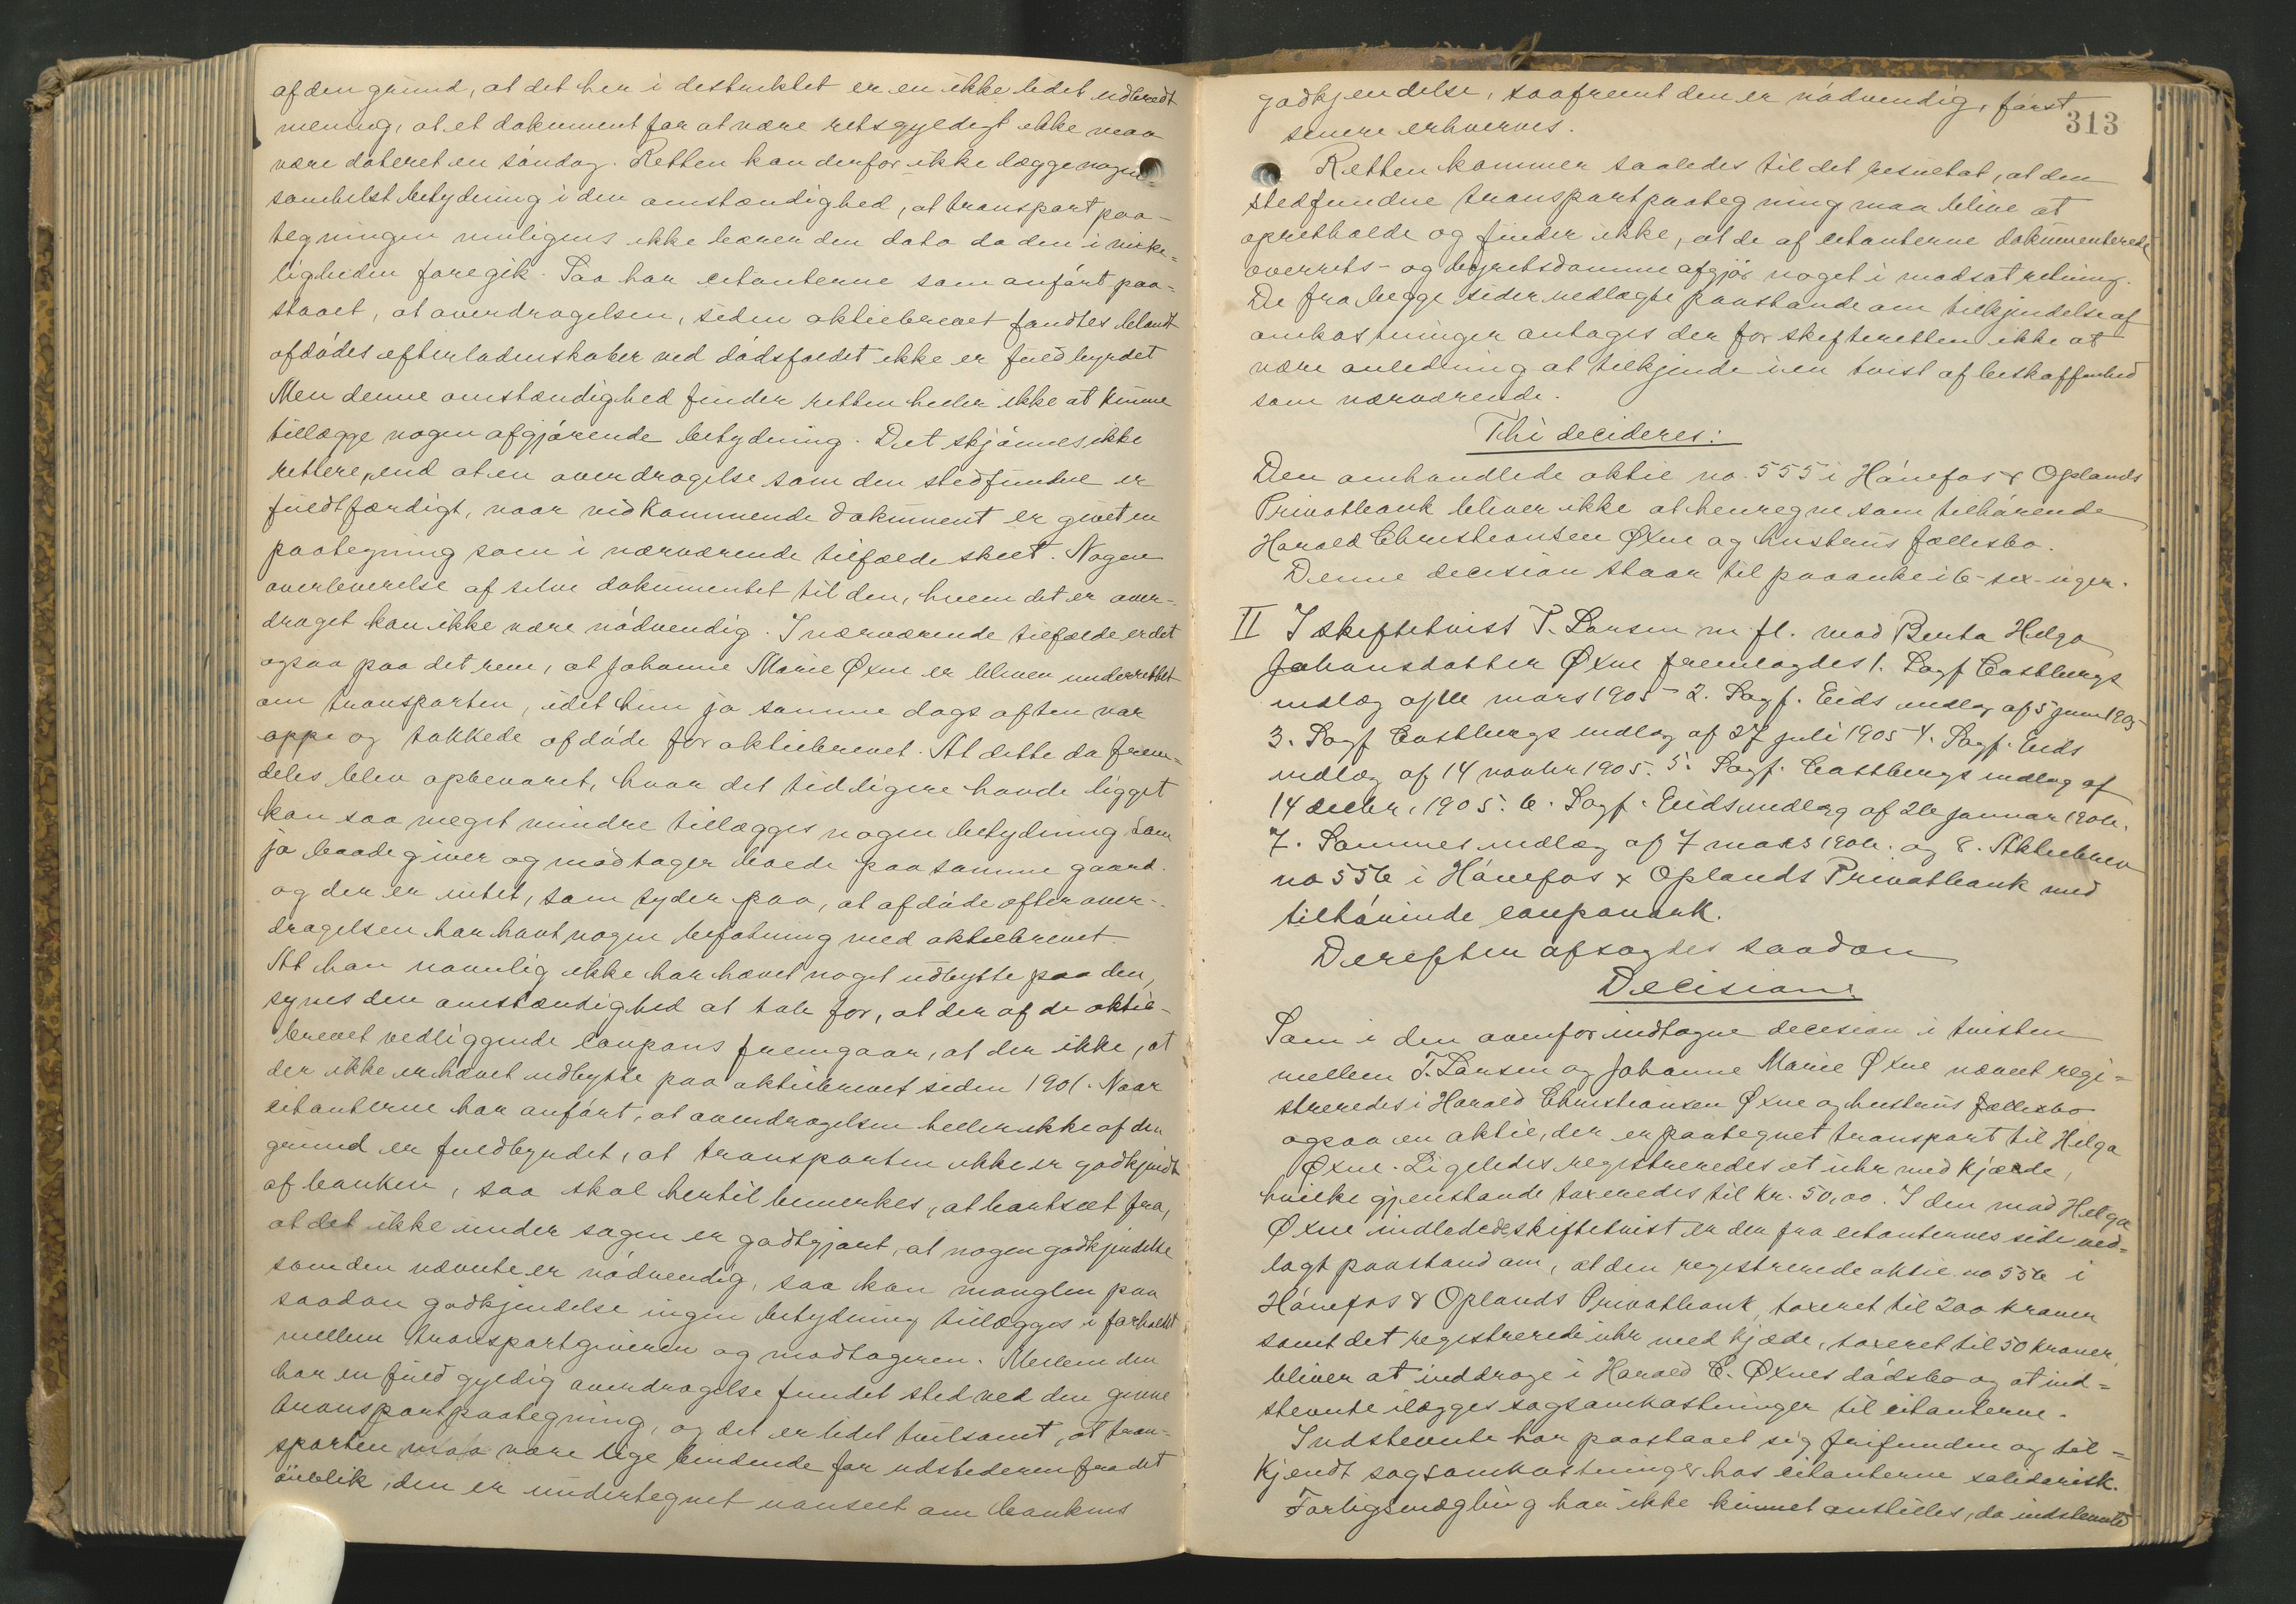 af den grund, at det her i destriktet er en ikke lidet udbredt
mening, at et dokument for at være retsgyldigt ikke maa
være dateret en søndag. Retten kan derfor ikke lægge nogen
somhelst betydning i den omstændighed, at transport paa-
tegningen muligens ikke bærer den dato da den i virke-
ligheden foregik. Saa har citanterne som anført paa-
staaet, at overdragelsen, siden aktiebrevet fandtes blandt
afdødes efterladenskaber ved dødsfaldet ikke er fuldbyrdet
Men denne omstændighed finder retten heller ikke at kunne
tillægge nogen afgjørende betydning. Det skjønnes ikke
rettere, end at en overdragelse som den stedfundne er
fuldtfærdigt, naar vidkommende dokument er givet en
paategning som i nærværende tilfælde skeet. Nogen
overleverelse af selve dokumentet til den, hvem det er over-
draget kan ikke være nødvendig. I nærværende tilfælde er det
ogsaa paa det rene, at Johanne Marie Øxne er bleven underrettet
om transporten, idet hun jo samme dags aften var
oppe og takkede afdøde for aktiebrevet. At dette da frem-
deles blev opbevaret, hvor det tidligere havde ligget
kan saa meget mindre tillægges nogen betydning som
jo baade giver og modtager boede paa samme gaard.
og der er intet, som tyder paa, at afdøde efter over-
dragelsen har havt nogen befatning med aktiebrevet.
At han navnlig ikke har hævet noget udbytte paa den,
synes den omstændighed at tale for, at der af de aktie-
brevet vedliggende coupons fremgaar, at der ikke, at
der ikke er hævet udbytte paa aktiebrevet siden 1901. Naar
citanterne har anført, at overdragelsen heller ikke af den
grund er fuldbyrdet, at transporten ikke er godkjendt
af banken, saa skal hertil bemerkes, at bortset fra,
at det ikke under sagen er godtgjort, at nogen godkjendelse
som den nævnte er nødvendig, saa kan manglen paa
saadan godkjendelse ingen betydning tillægges i forholdet
mellem transportgiveren og modtageren. Mellem den
har en fuld gyldig overdragelse fundet sted ved den givne
transportpaategning, og det er lidet tvilsomt, at tran-
sporten maa være lige bindende for udstederen fra det
øieblik, den er undertegnet uanseet om bankens
313
godkjendelse, saafremt den er nødvendig, først
senere erhverves.
Retten kommer saaledes til det resultat, at den
stedfundne transportpaategning maa blive at
opretholde og finder ikke, at de af citanterne dokumenterede
overrets- og byretsdomme afgjør noget i modsat retning.
De fra begge sider nedlagte paastande om tilkjendelse af
omkostninger antages der for skifteretten ikke at
være anledning at tilkjende i en tvist af beskaffenhed
som nærværende.
Thi decideres:
Den omhandlede aktie no. 555 i Hønefos & Oplands
Privatbank bliver ikke at henregne som tilhørende
Harald Christiansen Øxne og hustrus fællesbo.
Denne decision staar til paaanke i 6 - sex - uger.
II I skiftetvist T. Larsen m fl. mod Berta Helga
Johansdatter Øxne fremlagdes 1. Sagf Castbergs
indlæg af 11te mars 1905 - 2. Sagf. Eids indlæg af 5 juni 1905
3. Sagf Castbergs indlæg af 27 juli 1905 4. Sagf. Eids
indlæg af 14 novbr 1905. 5. Sagf. Castbergs indlæg af
14 decbr. 1905. 6. Sagf. Eids indlæg af 26 januar 1906.
7. Sammes indlæg af 7 mars 1906. og 8. Aktiebrev
no 556 i Hønefos & Oplands Privatbank med
tilhørende couponark.
Derefter afsagdes saadan
Decision
Som i den ovenfor indtagne decesion i tvisten
mellem T. Larsen og Johanne Marie Øxne nævnt regi-
streredes i Harald Christiansen Øxne og hustrus fællesbo
ogsaa en aktie, der er paategnet transport til Helga
Øxne. Ligeledes registreredes et uhr med kjæde,
hvilke gjenstande taxeredes til kr. 50,00. I den mod Helga
Øxne indledede skiftetvist er der fra citanternes side ned-
lagt paastand om, at den registrerede aktie no 556 i
Hønefos & Oplands Privatbank taxeret til 200 kroner
samt det registrerede uhr med kjæde, taxeret til 50 kroner,
bliver at inddrage i Harald C. Øxnes dødsbo og at ind-
stevnte ilægges sagsomkostninger til citanterne.
Indstevnte har paastaaet sig frifunden og til-
kjendt sagsomkostninger hos citanterne solidarisk.
Forligsmægling har ikke kunnet anstilles, da indstevnte